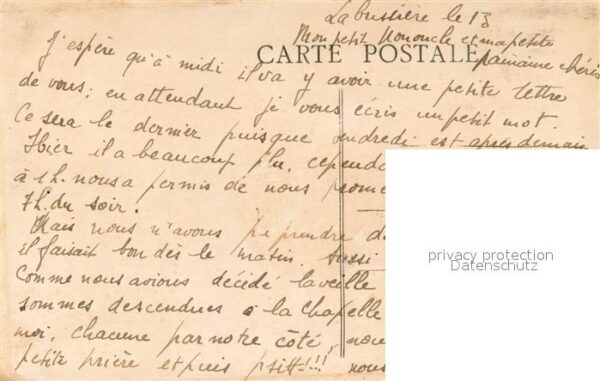 La bussière le 13
Mon petit Nononcle et ma petite
CARTE POSTALE
chéris
J'espère qu'à midi il va y avoir une petite lettre
de vous; en attendant je vous écris un petit mot.
Ce sera le dernier puisque vendredi est après demain
Hier il a beaucoup plu, cepend
à 1h. nous a permis de nous prome
7h. du soir.
Mais nous n'avons pu prendre d
il faisait bon dès le matin. Aussi
Comme nous avions décédé la veille
sommes descendues à la Chapelle
moi, chacune par notre côté, nou
petite prière et puis psitt!!! nous
privacy protection
Datenschutz